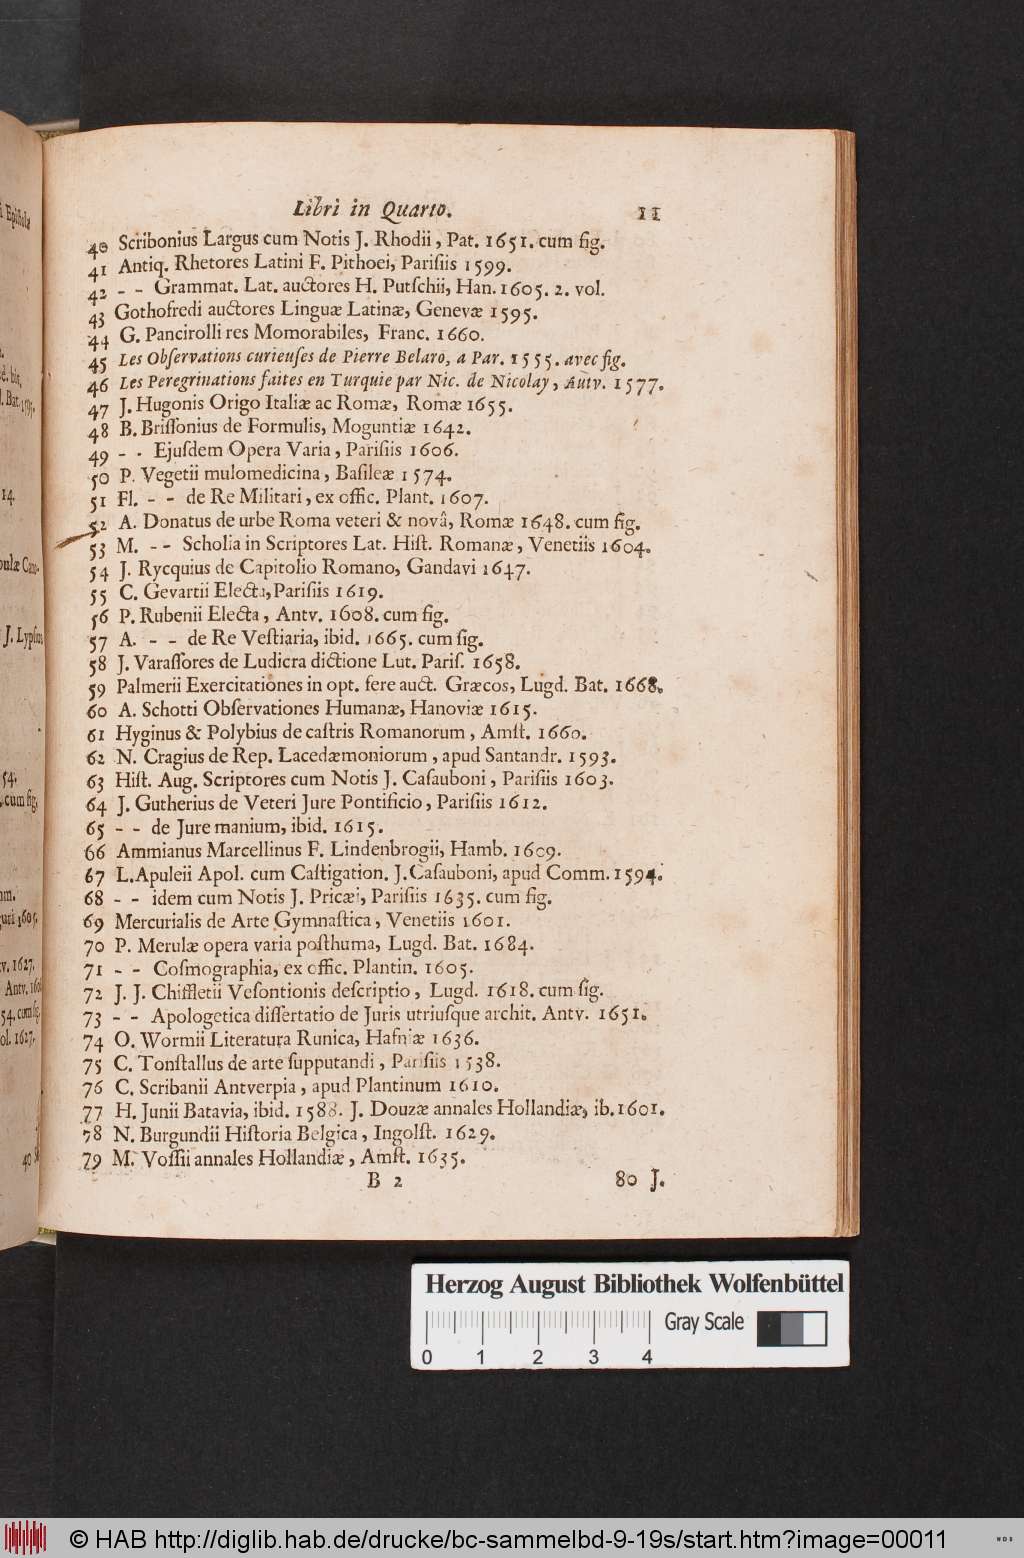 Libri in Quarto. 11
40 Scribonius Largus cum Notis J. Rhodii, Pat. 1651. cum fig.
41 Antiq. Rhetores Latini F. Pithoei, Parisiis 1599.
42 - - Grammat. Lat. auctores H. Putschii, Han. 1605. 2. vol.
43 Gothofredi auctores Linguæ Latinæ, Genevæ 1595.
44 G. Pancirolli res Momorabiles, Franc. 1660.
45 Les Observations curieuses de Pierre Belaro, a Par. 1555. avec fig.
46 Les Peregrinations faites en Turquie par Nic. de Nicolay, Antv. 1577.
47 J. Hugonis Origo Italiæ ac Romæ, Romæ 1655.
48 B. Brissonius de Formulis, Moguntiæ 1642.
49 - - Ejusdem Opera Varia, Parisiis 1606.
50 P. Vegetii mulomedicina, Basileæ 1574.
51 Fl. - - de Re Militari, ex offic. Plant. 1607.
52 A. Donatus de urbe Roma veteri & novâ, Romæ 1648. cum fig.
53 M. - - Scholia in Scriptores Lat. Hist. Romanæ, Venetiis 1604.
54 J. Rycquius de Capitolio Romano, Gandavi 1647.
55 C. Gevartii Electa, Parisiis 1619.
56 P. Rubenii Electa, Antv. 1608. cum fig.
57 A. - - de Re Vestiaria, ibid. 1665. cum fig.
58 J. Varassores de Ludicra dictione Lut. Paris. 1658.
59 Palmerii Exercitationes in opt. fere auct. Græcos, Lugd. Bat. 1668.
60 A. Schotti Observationes Humanæ, Hanoviæ 1615.
61 Hyginus & Polybius de castris Romanorum, Amst. 1660.
62 N. Cragius de Rep. Lacedæmoniorum, apud Santandr. 1593.
63 Hist. Aug. Scriptores cum Notis J. Casauboni, Parisiis 1603.
64 J. Gutherius de Veteri Jure Pontificio, Parisiis 1612.
65 - - de Jure manium, ibid. 1615.
66 Ammianus Marcellinus F. Lindenbrogii, Hamb. 1609.
67 L. Apuleii Apol. cum Castigation. J. Casauboni, apud Comm. 1594.
68 - - idem cum Notis J. Pricæi, Parisiis 1635. cum fig.
69 Mercurialis de Arte Gymnastica, Venetiis 1601.
70 P. Merulæ opera varia posthuma, Lugd. Bat. 1684.
71 - - Cosmographia, ex offic. Plantin. 1605.
72 J. J. Chiffletii Vesontionis descriptio, Lugd. 1618. cum fig.
73 - - Apologetica dissertatio de Juris utriusque archit. Antv. 1651.
74 O. Wormii Literatura Runica, Hafniæ 1636.
75 C. Tonstallus de arte supputandi, Parisiis 1538.
76 C. Scribanii Antverpia, apud Plantinum 1610.
77 H. Junii Batavia, ibid. 1588. J. Douzæ annales Hollandiæ, ib. 1601.
78 N. Burgundii Historia Belgica, Ingolst. 1629.
79 M. Vossii annales Hollandiæ, Amst. 1635.
B 2 80 J.
Herzog August Bibliothek Wolfenbüttel
Gray Scale
0 1 2 3 4
© HAB http://diglib.hab.de/drucke/bc-sammelbd-9-19s/start.htm?image=00011